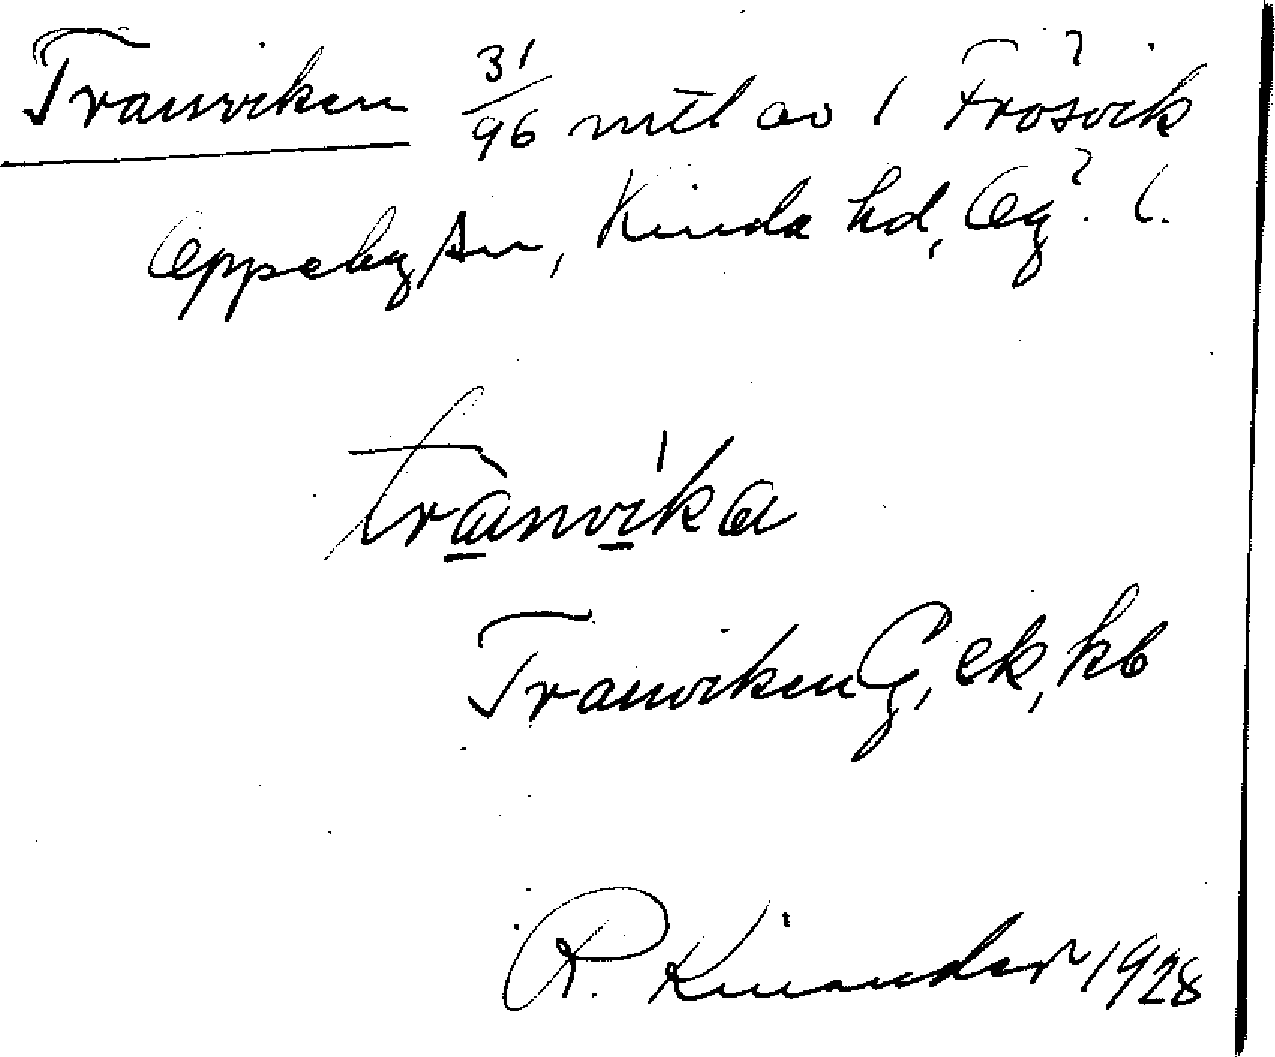 Tranviken 31/96 mtl av 1 Frösvik
Oppeby sn, Kinda hd, Ög. l.
tranvika
Tranviken G, ek, kb
R. Kinander 1928